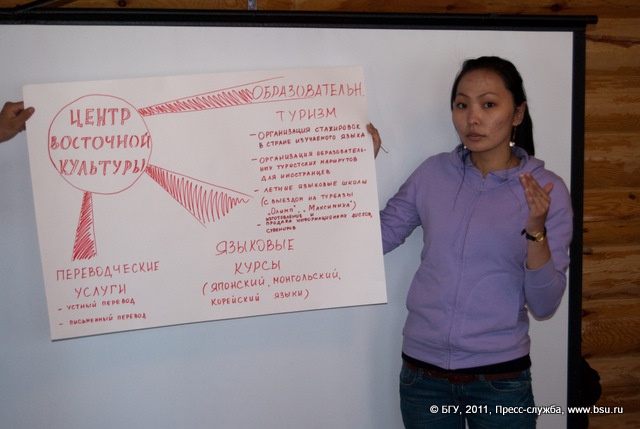 ЦЕНТР
ВОСТОЧНОЙ
КУЛЬТУРЫ
ОБРАЗОВАТЕЛЬН.
ТУРИЗМ
- ОРГАНИЗАЦИЯ СТАЖИРОВОК
В СТРАНЕ ИЗУЧАЕМОГО ЯЗЫКА
- ОРГАНИЗАЦИЯ ОБРАЗОВАТЕЛЬ-
НЫХ ТУРИСТСКИХ МАРШРУТОВ
ДЛЯ ИНОСТРАНЦЕВ
- ЛЕТНИЕ ЯЗЫКОВЫЕ ШКОЛЫ
(С ВЫЕЗДОМ НА ТУРБАЗЫ
"ОЛИМП", "МАКСИМИХА")
ИЗГОТОВЛЕНИЕ И
- ПРОДАЖА ИНФОРМАЦИОННЫХ
СУВЕНИРОВ
ЯЗЫКОВЫЕ
КУРСЫ
(ЯПОНСКИЙ, МОНГОЛЬСКИЙ,
КОРЕЙСКИЙ ЯЗЫКИ)
ПЕРЕВОДЧЕСКИЕ
УСЛУГИ
- УСТНЫЙ ПЕРЕВОД
- ПИСЬМЕННЫЙ ПЕРЕВОД
© БГУ, 2011, Пресс-служба, www.bsu.ru